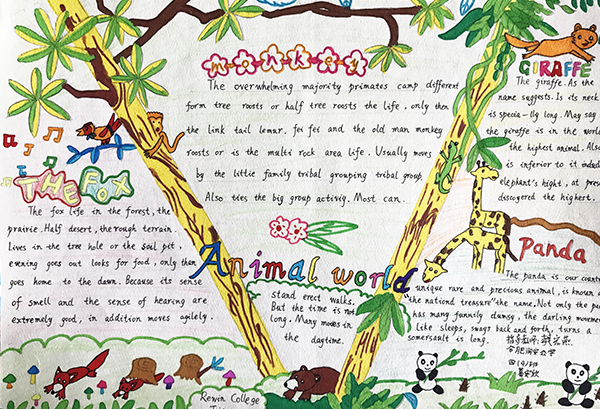 monkeys
The overwhelming majority primates camp different
form tree roosts or half tree roosts the life, only then
the link tail lemur. fei fei and the old man monkey
roosts or is the multi rock area life. Usually moves
by the little family tribal grouping tribal group.
Also ties the big group activiy. Most can.
stand erect walks.
But the time is not
long. Many moves in
the daytime.
THE FOX
The fox life in the forest, the
prairie. Half desert, the rough terrain.
Lives in the tree hole or the soil pit,
evening goes out looks for food, only then
goes home to the dawn. Because its sense
of smell and the sense of hearing are
extremely good, in addition moves agilely.
Animal world
GIRAFFE
The giraffe. As the
name suggests. Is its neck
is specia-lly long. May say
the giraffe is in the world
the highest animal. Also
is inferior to it
elephant's hight, at pres
discovered the highest.
Panda
The panda is our count
unique rare and precious animal, is known a
"the nationd treasure" the name, Not only the pa
has many funnily dumsy, the darling movemen
like sleeps, swags back and forth, turns a
somersault is long.
Rowin College